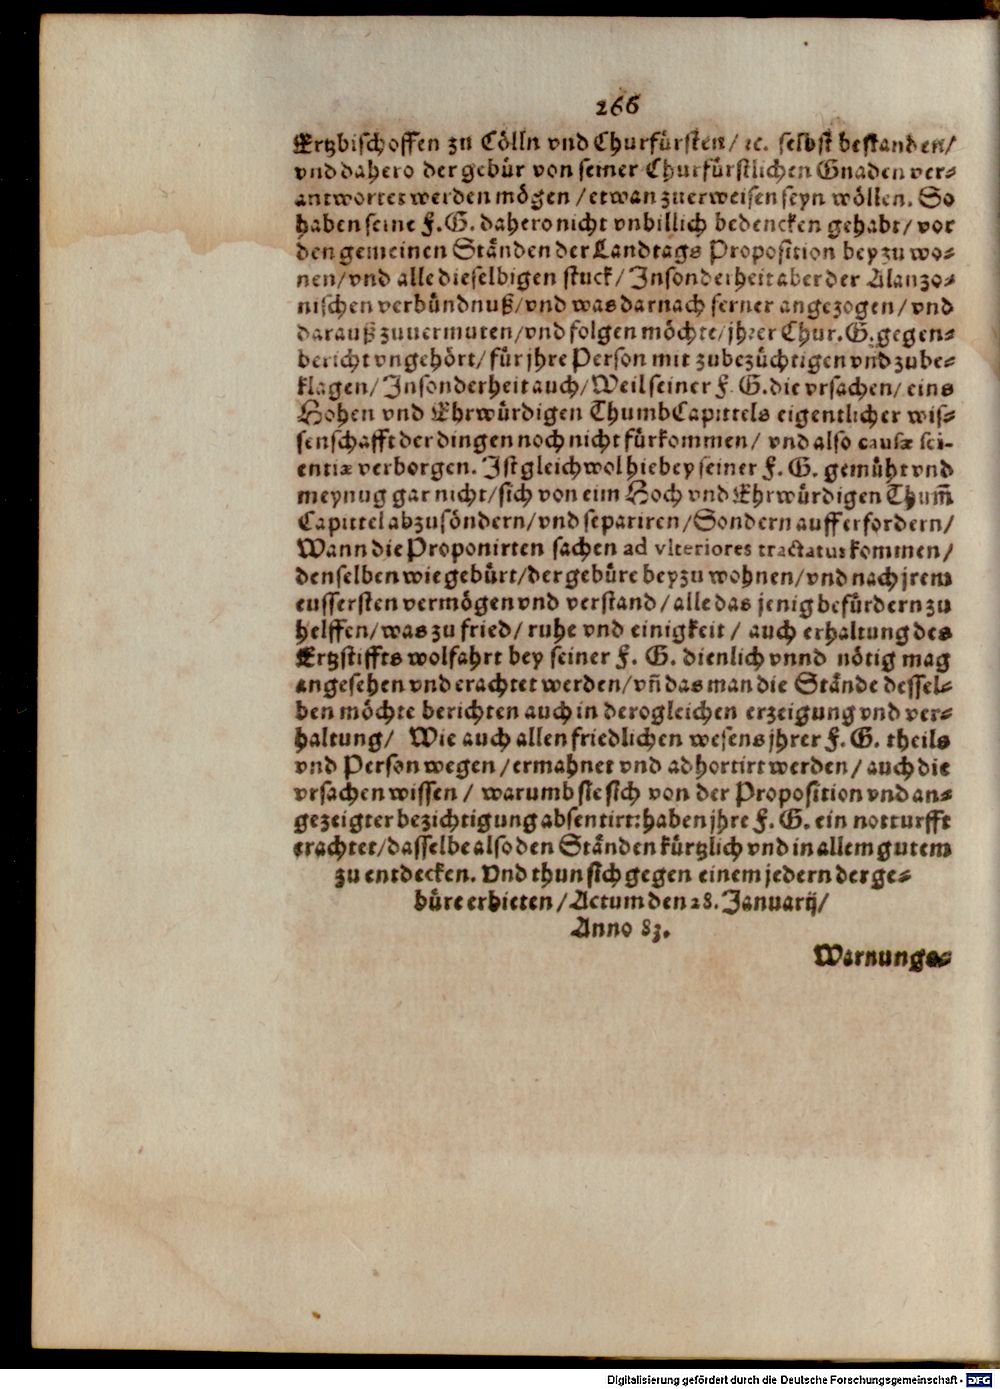 266
Ertzbischoffen zu Cölln vnd Churfürsten/ ꝛc. selbst bestanden/
vnd dahero der gebür von seiner Churfürstlichen Gnaden ver⸗
antwortet werden mögen / etwan zuerweisen seyn wöllen. So
haben seine F. G. dahero nicht vnbillich bedencken gehabt/ vor
den gemeinen Ständen der Landtags Proposition bey zu wo⸗
nen/ vnd alle dieselbigen stuck/ Insonderheit aber der Alanzo⸗
nischen verbündnuß/ vnd was darnach ferner angezogen/ vnd
darauß zuuermuten/ vnd folgen möchte/ jhrer Chur. G. gegen⸗
bericht vngehört/ für jhre Person mit zubezüchtigen vnd zube⸗
klagen/ Insonderheit auch/ Weil seiner F. G. die vrsachen/ eins
Hohen vnd Ehrwürdigen ThumbCapittels eigentlicher wis⸗
senschafft der dingen noch nicht fürkommen/ vnd also causæ sci-
entiæ verborgen. Ist gleichwol hiebey seiner F. G. gemüht vnd
meynug gar nicht/ sich von eim Hoch vnd Ehrwürdigen Thum̃
Capittel abzusöndern/ vnd separiren/ Sondern auff erfordern/
Wann die Proponirten sachen ad vlteriores tractatus kommen/
denselben wie gebürt/ der gebüre bey zu wohnen/ vnd nach jrem
eussersten vermögen vnd verstand/ alle das jenig befürdern zu
helffen/ was zu fried/ ruhe vnd einigkeit / auch erhaltung des
Ertzstiffts wolfahrt bey seiner F. G. dienlich vnnd nötig mag
angesehen vnd erachtet werden/ vñ das man die Stände dessel⸗
ben möchte berichten auch in derogleichen erzeigung vnd ver⸗
haltung/ Wie auch allen friedlichen wesens jhrer F. G. theils
vnd Person wegen / ermahnet vnd adhortirt werden/ auch die
vrsachen wissen / warumb sie sich von der Proposition vnd an⸗
gezeigter bezichtigung absentirt: haben jhre F. G. ein notturfft
erachtet/ dasselbe also den Ständen kürtzlich vnd in allem gutem
zu entdecken. Vnd thun sich gegen einem jedern der ge⸗
büre erbieten / Actum den 28. Januarij/
Anno 83.
Warnungs⸗
Digitalisierung gefördert durch die Deutsche Forschungsgemeinschaft - DFG